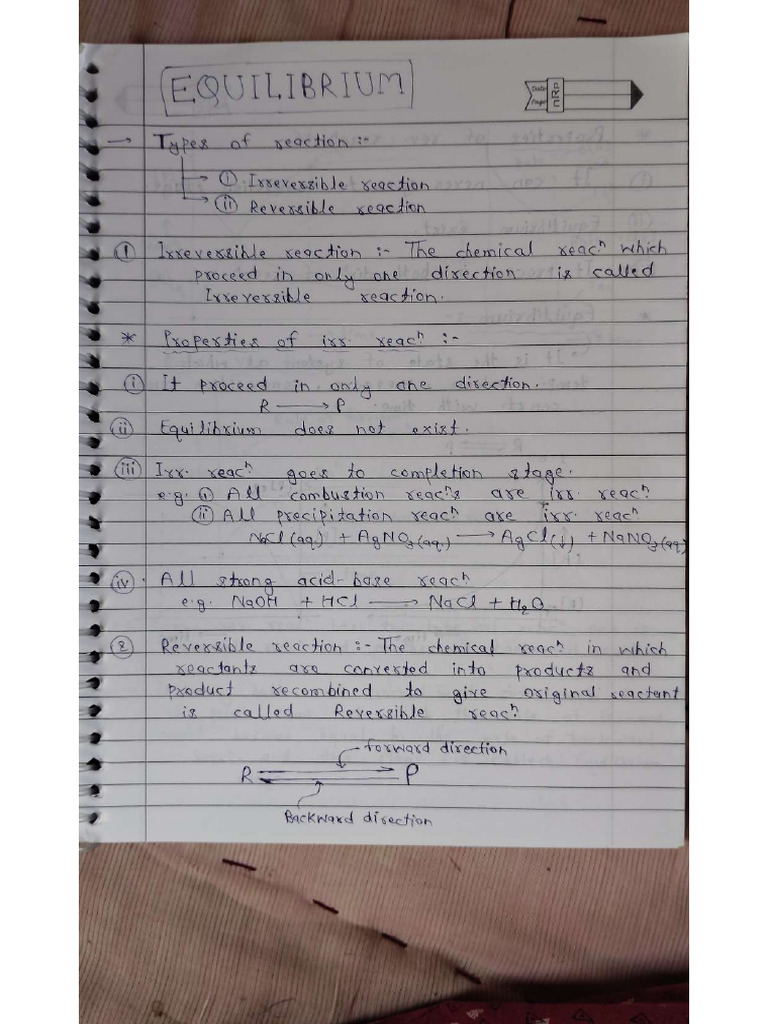 EQUILIBRIUM
Date
Page
nRP
→ Types of reaction :-
→ (i) Irreversible reaction
→ (ii) Reversible reaction
(1) Irreversible reaction :- The chemical reacⁿ which
proceed in only one direction is called
Irreversible reaction.
* Properties of irr. reacⁿ :-
(i) It proceed in only one direction.
R → P
(ii) Equilibrium does not exist.
(iii) Irr. reacⁿ goes to completion stage.
e.g. (i) All combustion reacⁿs are irr. reacⁿ
(ii) All precipitation reacⁿ are irr. reacⁿ
NaCl(aq.) + AgNO₃(aq.) → AgCl(↓) + NaNO₃(aq)
(iv). All strong acid-base reacⁿ
e.g. NaOH + HCl → NaCl + H₂O
(2) Reversible reaction :- The chemical reacⁿ in which
reactants are converted into products and
product recombined to give original reactant
is called Reversible reacⁿ
forward direction
R ⇌ P
Backward direction